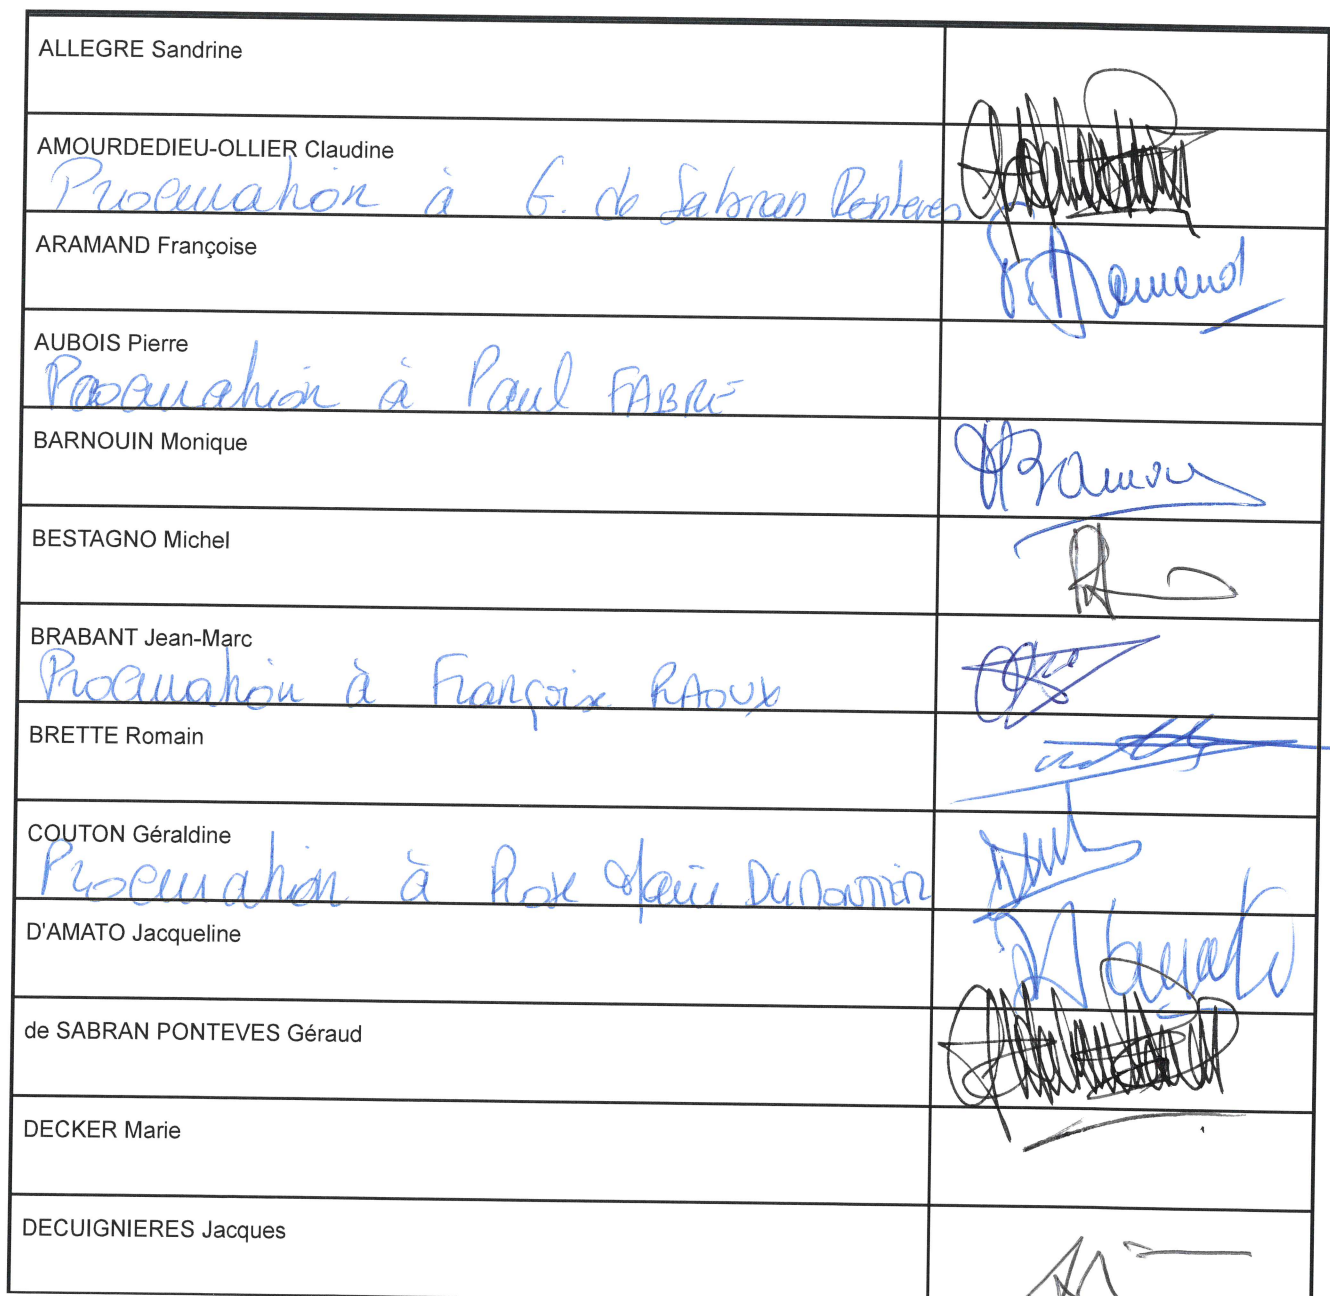 ALLEGRE Sandrine
AMOURDEDIEU-OLLIER Claudine
Procuration à G. de Sabran Ponteves
ARAMAND Françoise
F. Aramand
AUBOIS Pierre
Procuration à Paul FABRE
BARNOUIN Monique
BESTAGNO Michel
BRABANT Jean-Marc
Procuration à Françoise RAOUX
BRETTE Romain
COUTON Géraldine
Procuration à Rose Marie
D'AMATO Jacqueline
de SABRAN PONTEVES Géraud
DECKER Marie
DECUIGNIERES Jacques